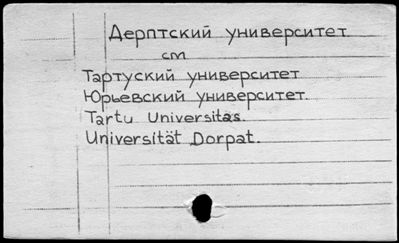 Дерптский университет
см
Тартуский университет
Юрьевский университет.
Tartu Universitas.
Universität Dorpat.